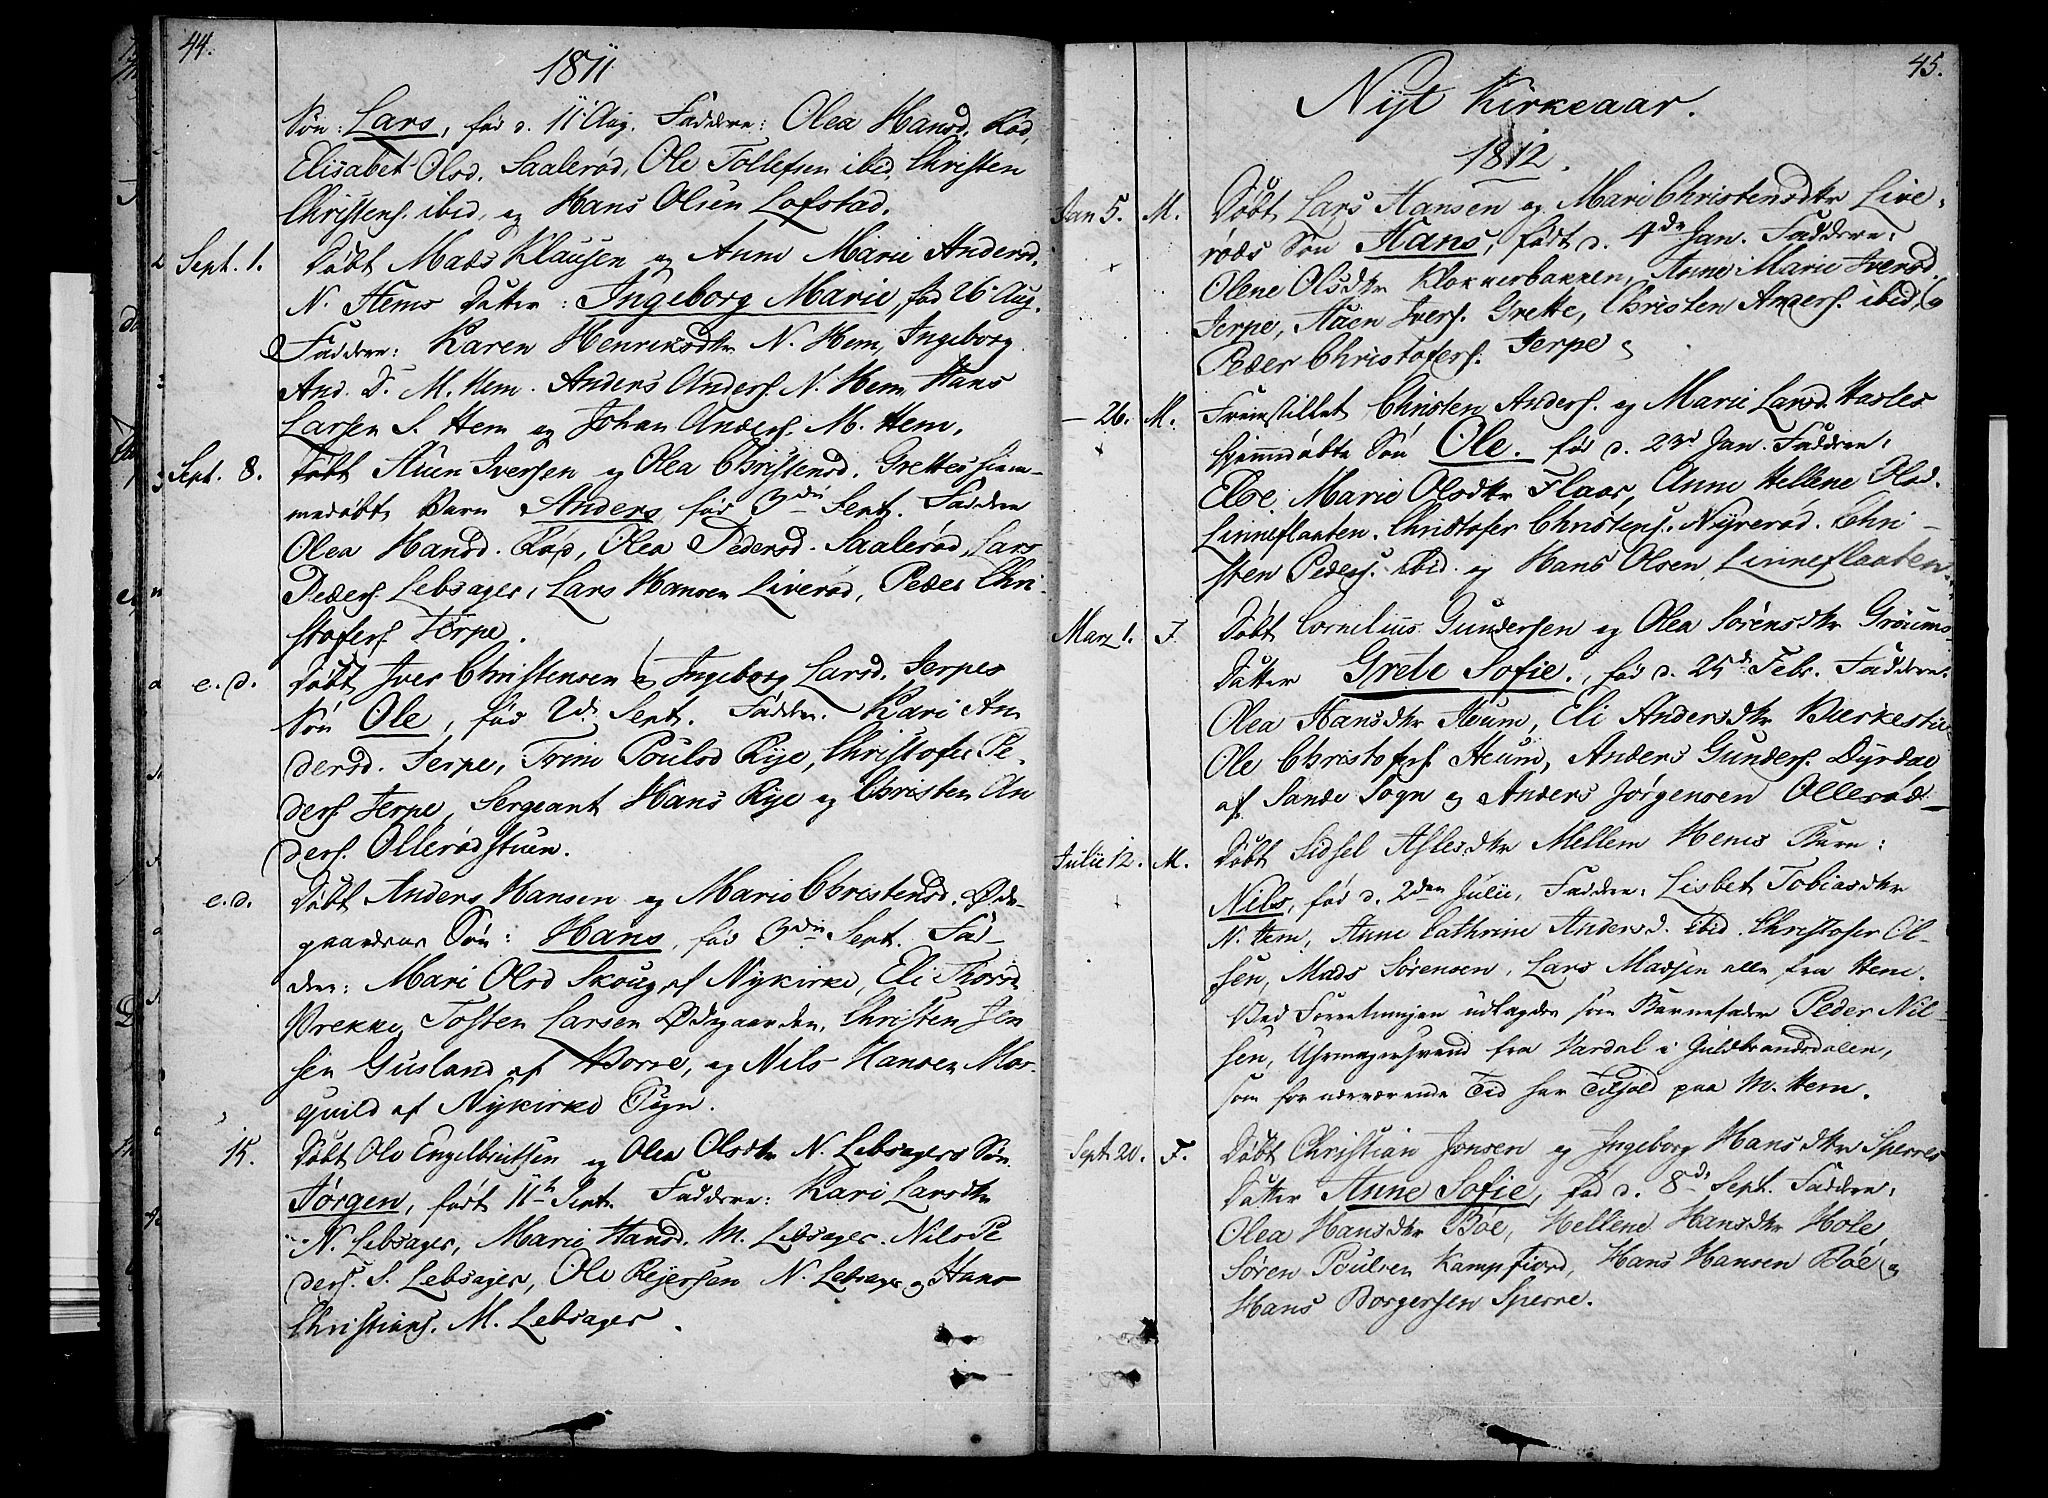 44.
1811
Søn: Lars, fød d. 11 Aug. Faddere: Olea Hansd. Rød,
Elisabet Olsd. Saalerød, Ole Tollefsen ibid, Christen
Christens. ibid, og Hans Olsen Lofstad.
Sept. 1. Døbt Mads Klausen og Anne Marie Andersd.
N. Hems Datter: Ingeborg Marie, fød 26 Aug.
Faddere: Karen Henriksdtr N. Hem, Ingeborg
And. D. M. Hem. Anders Anders. N. Hem, Hans
Larsen S. Hem og Johan Anders. M. Hem.
Sept. 8. Døbt Auen Iversen og Olea Christensd. Grettes hiem-
medøbt Barn Anders, fød 3die Sept. Faddere
Olea Hansd. Rød, Olea Pedersd. Saalerød, Lars
Peders. Lebsager, Lars Hansen Liverød, Peder Chri-
stofers. Jerpe.
e. d. Døbt Iver Christensen og Ingeborg Larsd. Jerpes
Søn Ole, fød 2d Sept. Faddere. Kari An
dersd. Jerpe, Trine Poulsd Rye, Christofer Pe-
ders. Jerpe, Sergeant Hans Rye og Christen An
ders. Ollerødstuen.
e. d. Døbt Anders Hansen og Marie Christensd. Øde-
gaardens Søn: Hans, fød 3die Sept. Fad-
dere: Mari Olsd Skoug af Nykirke, Eli Thorsd.
Vrekke, Tosten Larsen Ødegaarden, Christen Jen
sen Gusland af Borre, og Nils Hansen Mar-
quild af Nykirke Sogn.
15. Døbt Ole Engelbretsen og Olea Olsdtr N. Lebsagers Søn
Jørgen, født 11te Sept. Faddere: Kari Larsdtr
N. Lebsager, Marie Hansd. M. Lebsager. Nils Pe
ders. S. Lebsager, Ole Reyersen N. Lebsager og Hans
Christians. M. Lebsager.
45.
Nyt Kirkeaar.
1812.
Jan 5. M. Døbt Lars Hansen og Mari Christensdtr Live-
røds Søn Hans, født d. 4de Jan. Faddere:
Olene Olsdtr Klokkerbakken, Anne Marie Iversd.
Jerpe, Auen Ivers. Grette, Christen Anders. ibid, og
Peder Christofers. Jerpe.
- 26. M. Fremstillet Christen Anders. og Marie Larsd. Hasles
hjemmdøbte Søn Ole. fød d. 23d Jan. Faddere:
Else Marie Olsdtr Flaar, Anne Hellene Olsd.
Linneflaaten. Christofer Christens. Nyrerød. Chri-
sten Peders. ibid. og Hans Olsen Linneflaaten.
Marz 1. F. Døbt Cornelius Gundersen og Olea Sørensdtr Grøums
Datter Grete Sofie., fød d. 25d Febr. Faddere:
Olea Hansdtr Heum, Eli Andersdtr
Ole Christofers. Heum, Anders Gunders. Dyrdal
af Sande Sogn og Anders Jørgensen Ollerød
Julii 12. M. Døbt Sidsel Aslesdtr Mellem Hems Barn:
Nils, fød d. 2den Julii, Faddere: Lisbet Tobiasdtr
N. Hem, Anne Cathrine Andersd. ibid. Christofer Ol-
sen, Mads Sørensen, Lars Madsen alle fra Hem.
Ved Forretningen udlagdes som Barnefader Peder Nil-
sen, Uhrmagersvend fra Vardal i Guldbrandsdalen,
som for nærværende Tid har Tilhold paa M. Hem.
Sept. 20. F. Døbt Christian Jonsen og Ingeborg Hansdtr Sperres
Datter Anne Sofie, fød d. 8de Sept. Faddere:
Olea Hansdtr Bøe, Hellene Hansdtr Hole,
Søren Poulsen Kampfiord, Hans Hansen Bøe og
Hans Borgersen Sperre.